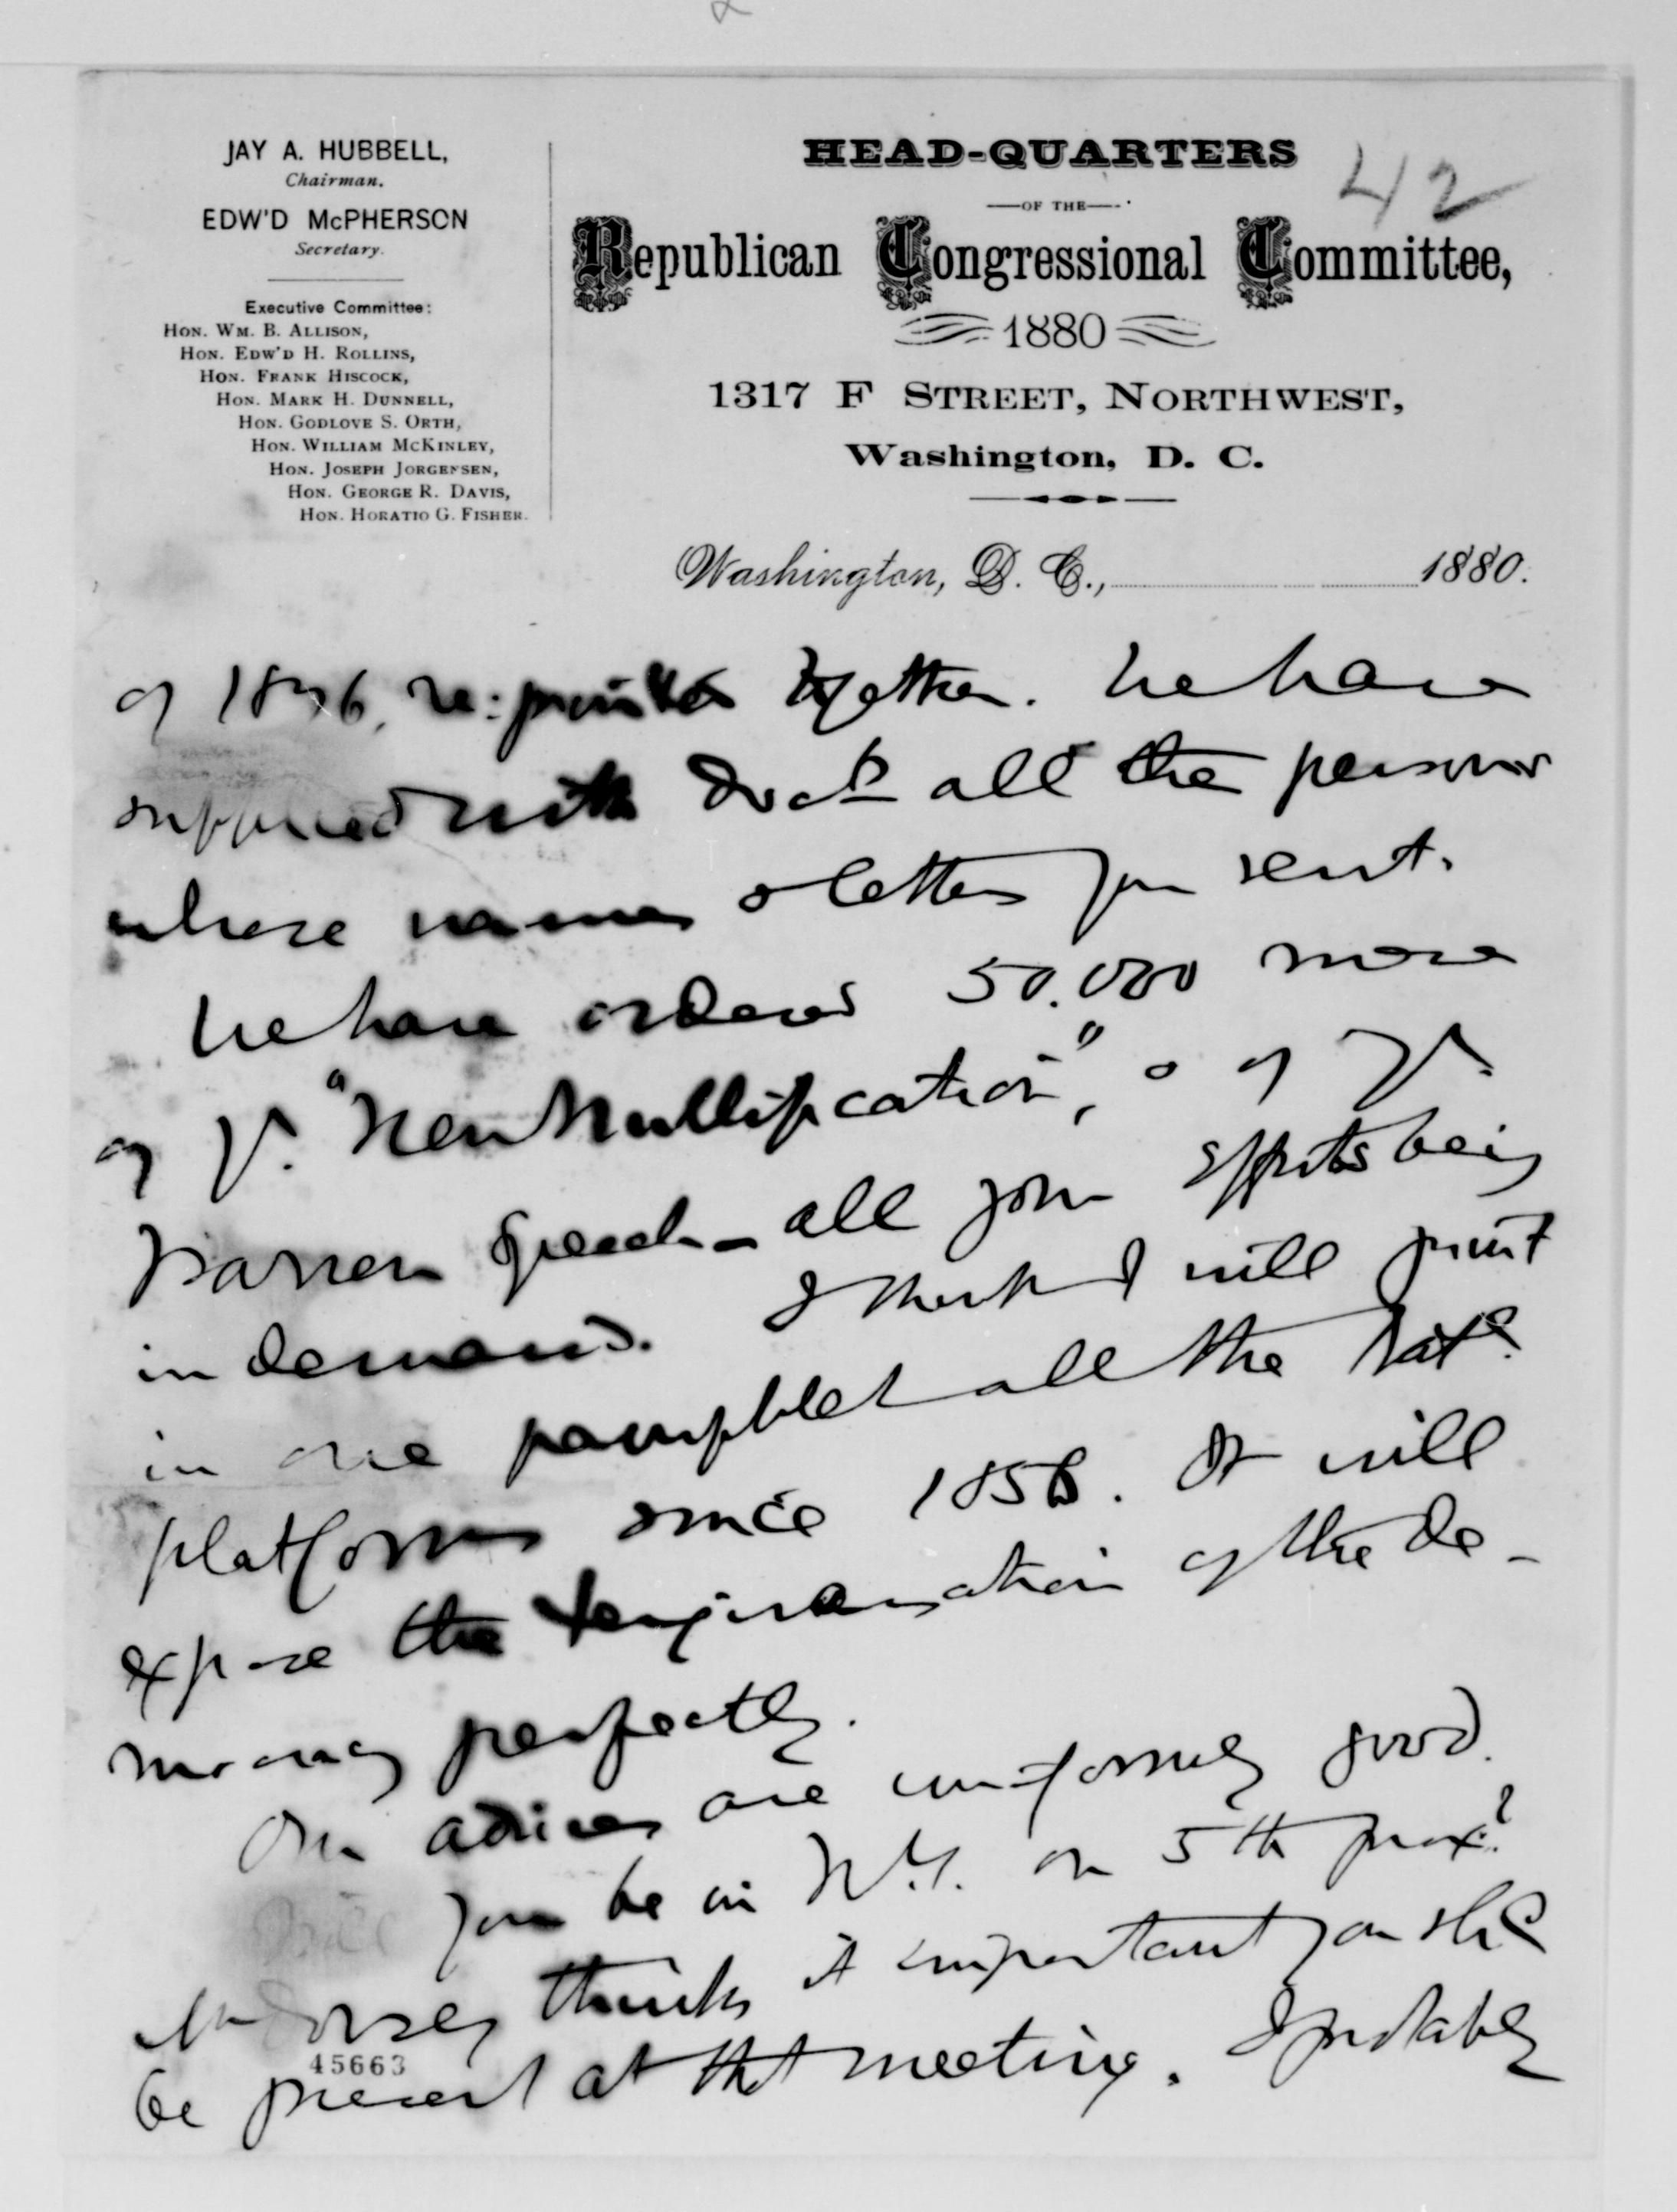 JAY A. HUBBELL,
Chairman.
EDW'D McPHERSON
Secretary.
Executive Committee:
HON. WM. B. ALLISON,
HON. EDW'D H. ROLLINS,
HON. FRANK HISCOCK,
HON. MARK H. DUNNELL,
HON. GODLOVE S. ORTH,
HON. WILLIAM McKINLEY,
HON. JOSEPH JORGENSEN,
HON. GEORGE R. DAVIS,
HON. HORATIO G. FISHER.
HEAD-QUARTERS
42
OF THE
Republican Congressional Committee,
1880
1317 F STREET, NORTHWEST,
Washington, D. C.
Washington, D. C., 1880.
of 1876, re-printed together. We have
supplied with docts all the persons
whose names & letters you sent.
We have ordered 50.000 more
of yr. "New Nullification", & of yr.
Warren speech - all your efforts being
in demand. I think I will print
in one pamphlet all the Natl.
platforms since 1856. It will
expose the of the De-
mocracy perfectly.
Our advices are uniformly good.
Will you be in N.Y. on 5th prox?
Mr Dorsey thinks it important you shd
be present at that meeting. I probably
45663